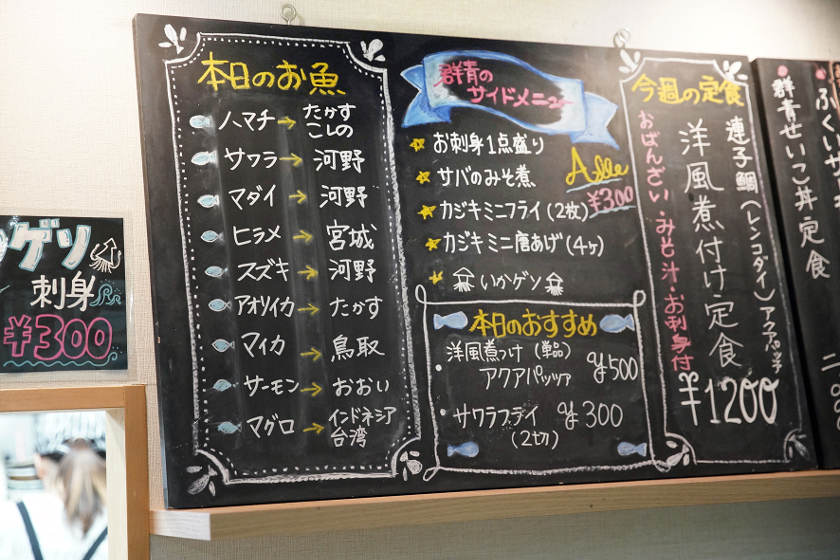 ゲソ
刺身
¥300
本日のお魚
ハマチ→たかす
こしの
サワラ→河野
マダイ→河野
ヒラメ→宮城
スズキ→河野
アオリイカ→たかす
マイカ→鳥取
サーモン→おおい
マグロ→インドネシア
台湾
群青の
サイドメニュー
お刺身1点盛り
サバのみそ煮
カジキミニフライ(2枚)
カジキミニ唐あげ(4ヶ)
いかゲソ
All
¥300
本日のおすすめ
・洋風煮つけ(単品) ¥500
アクアパッツァ
・サワラフライ ¥300
(2切)
今週の定食
連子鯛(レンコダイ)アクアパッツァ
洋風煮付け定食
おばんざい・みそ汁・お刺身付
¥1200
群青せいこ丼定食